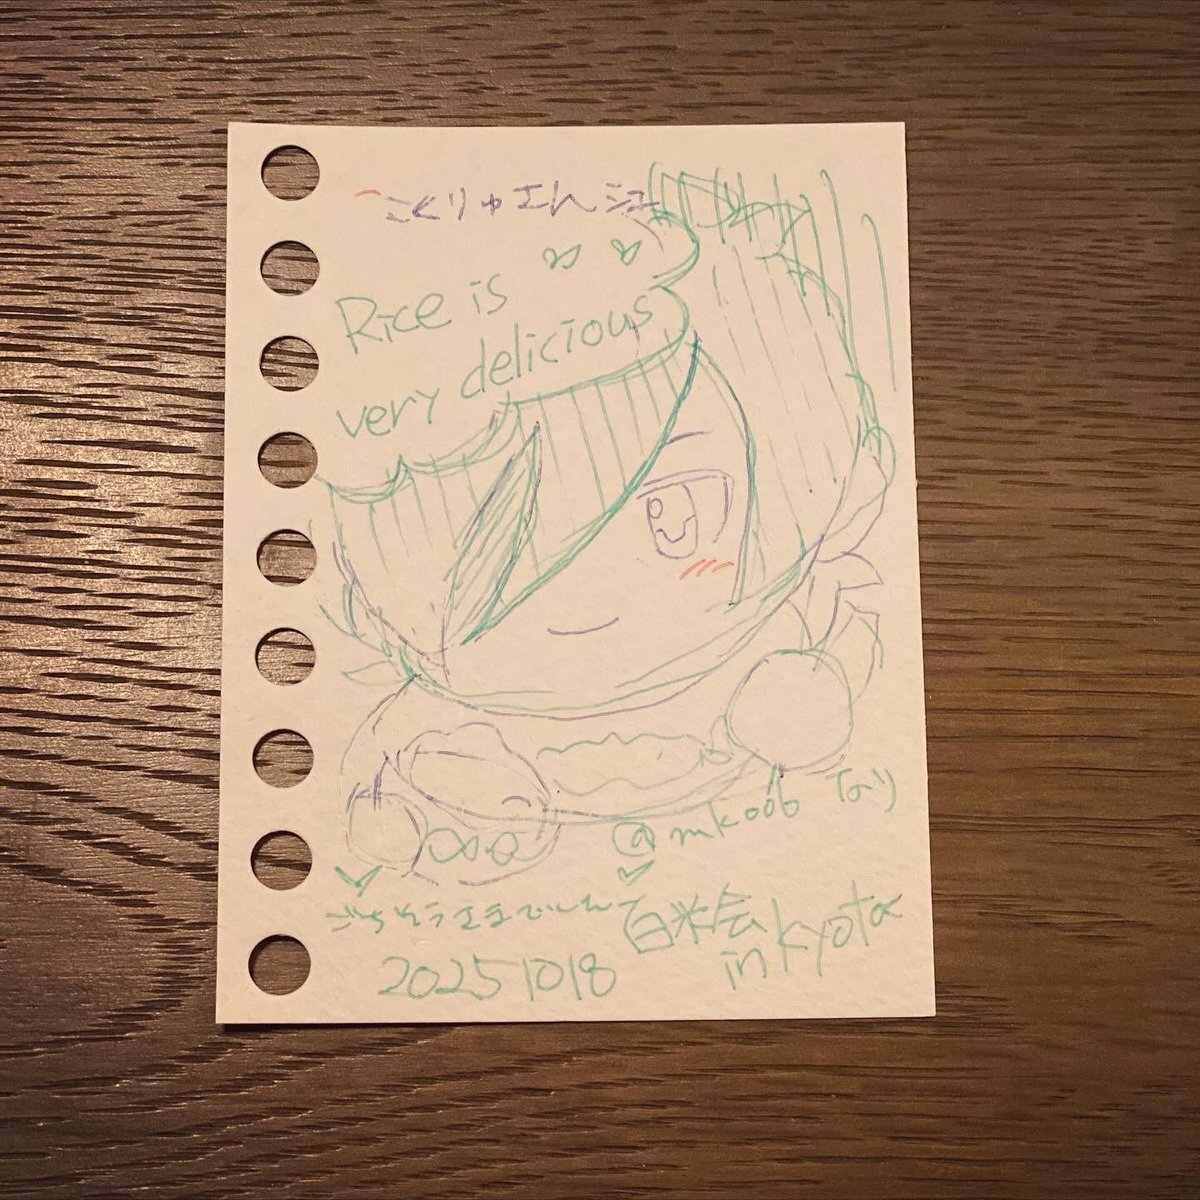 こくりゅエん江
Rice is
very delicious
@mk006 より
ごちそうさまでした
白米会
in kyoto
20251018